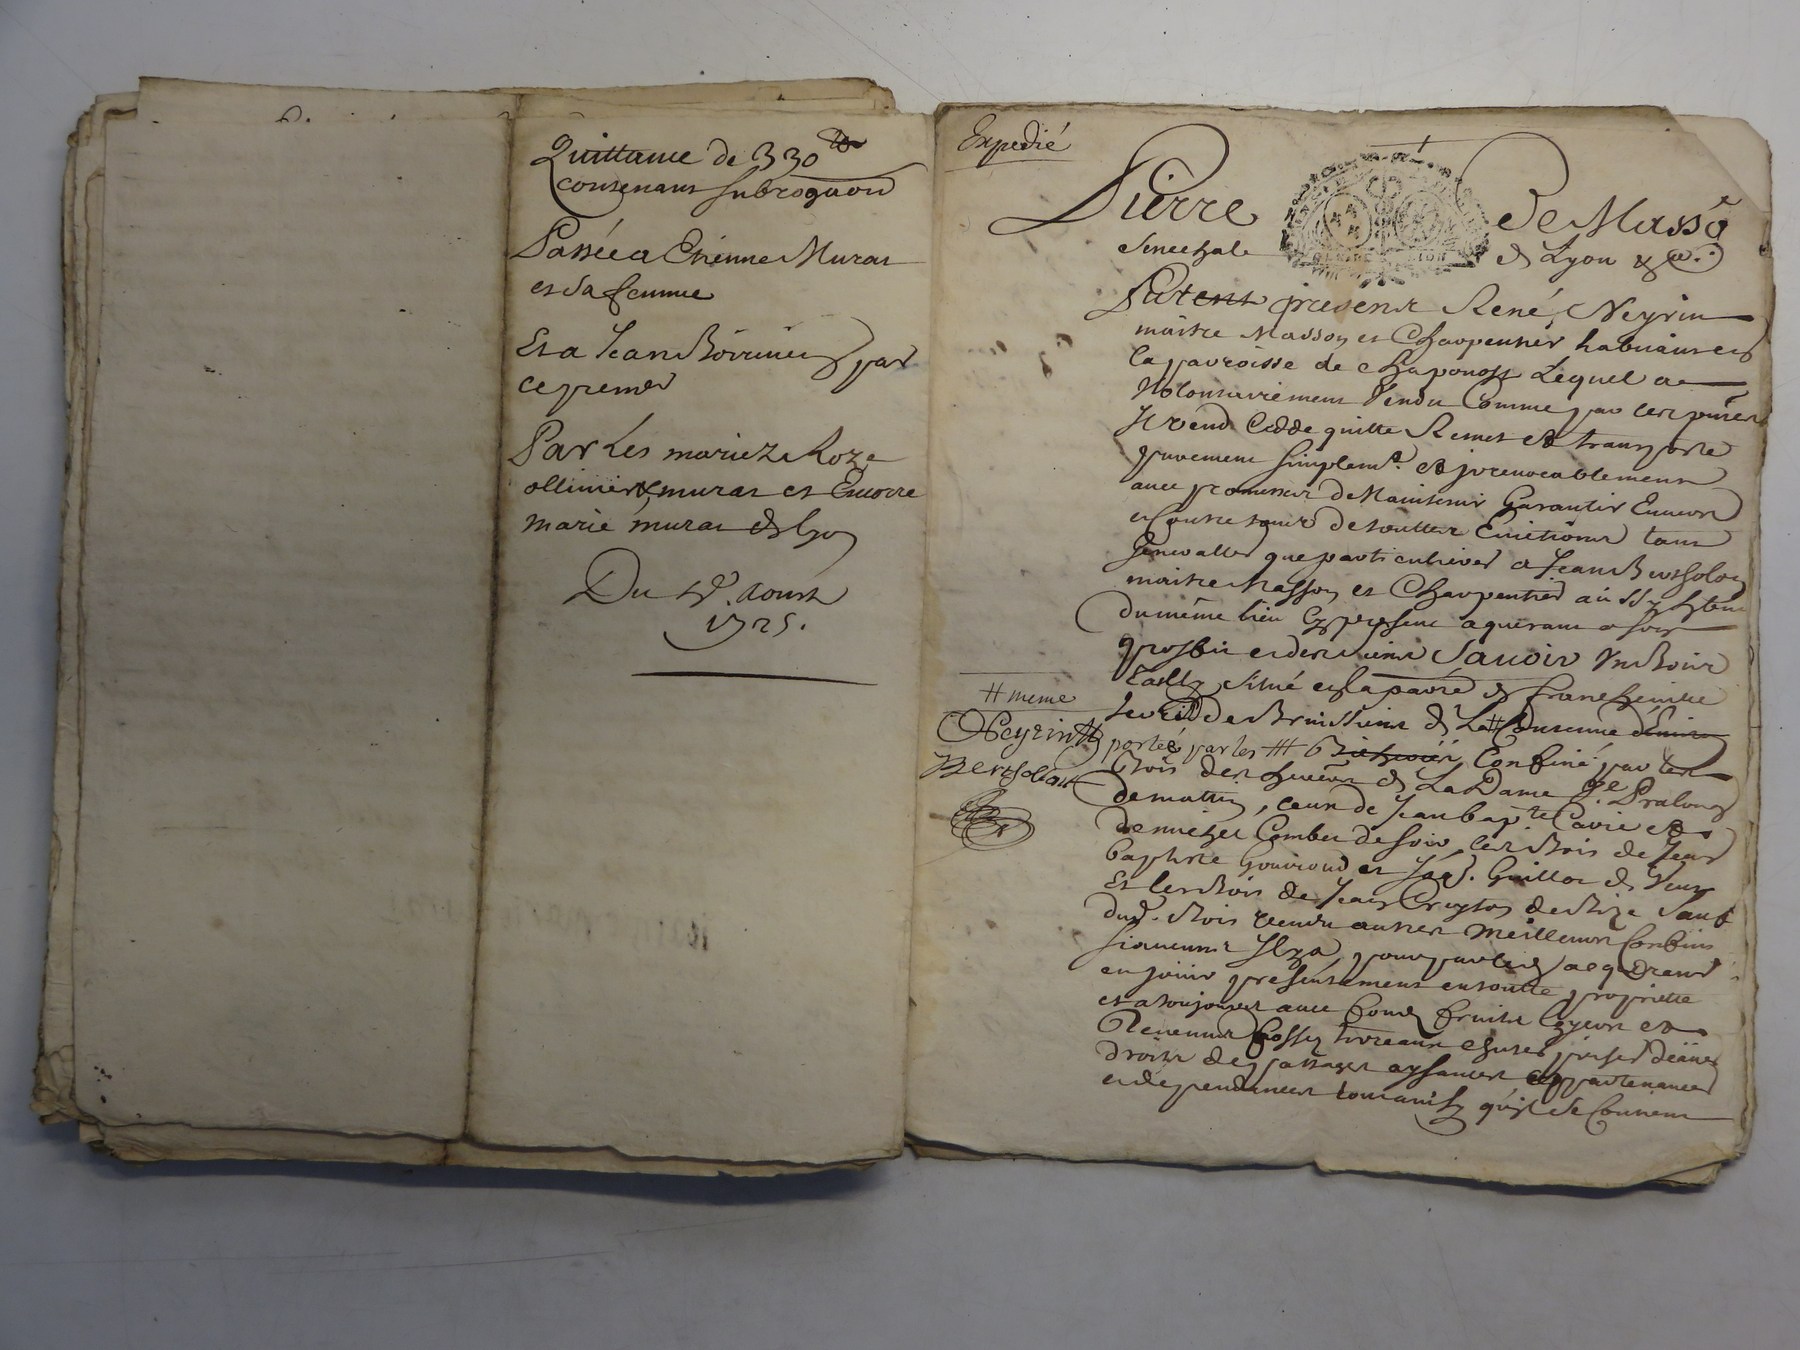 Quittance de 330 ₶
contenant subrogaon
Passée a Etienne Murat
et sa femme
Et a Jean Boiron par
ce premer
Par Les mariez Roze
ollinier & murat et Encorre
marie murat de lyon
Du aoust
1725.
Expedié
Pierre De Masso
Senechal de Lyon &c.
Furent present René Neyrin
maitre Masson et Charpentier habitant en
la parroisse de chaponost Lequel a
Volontairement Vendu Comme par ces pntes
Il vend Cedde quitte Remet et transporte
purement simplemt. et jrrevocablement
avec promesse de Maintenir Garantir Envers
et Contre tous de toutte Evictions tant
generalles que particulieres a Jean Bertholon
maitre Masson et Charpentier aussy
du même lieu Cy present aquerant a son
proffit et des siens Savoir Un Bois
taillis situé en la parre de francheville
de la #
portée par les # Confiné par les
Bois des de La Dame Pralong
de matin, ceux de Jean bapte Cavie et
de michel Combet de soir, les Bois de Jean
baptiste Gouvroud et Jaq. Guillot de Vent
Et les Bois de Jean de Bize Sauf
dud. Bois vendu autres meilleurs Confins
sy aucuns Il y a pour par led acquereur
en jouir presentement en toutte proprietté
et a toujours avec fond fruits et
Revenus fossez terreaux prises d'eaux
droits de passages aysances appartenances
et dependances tout ainsy qu'il se Contient
# meme
Neyrin
Berthollon